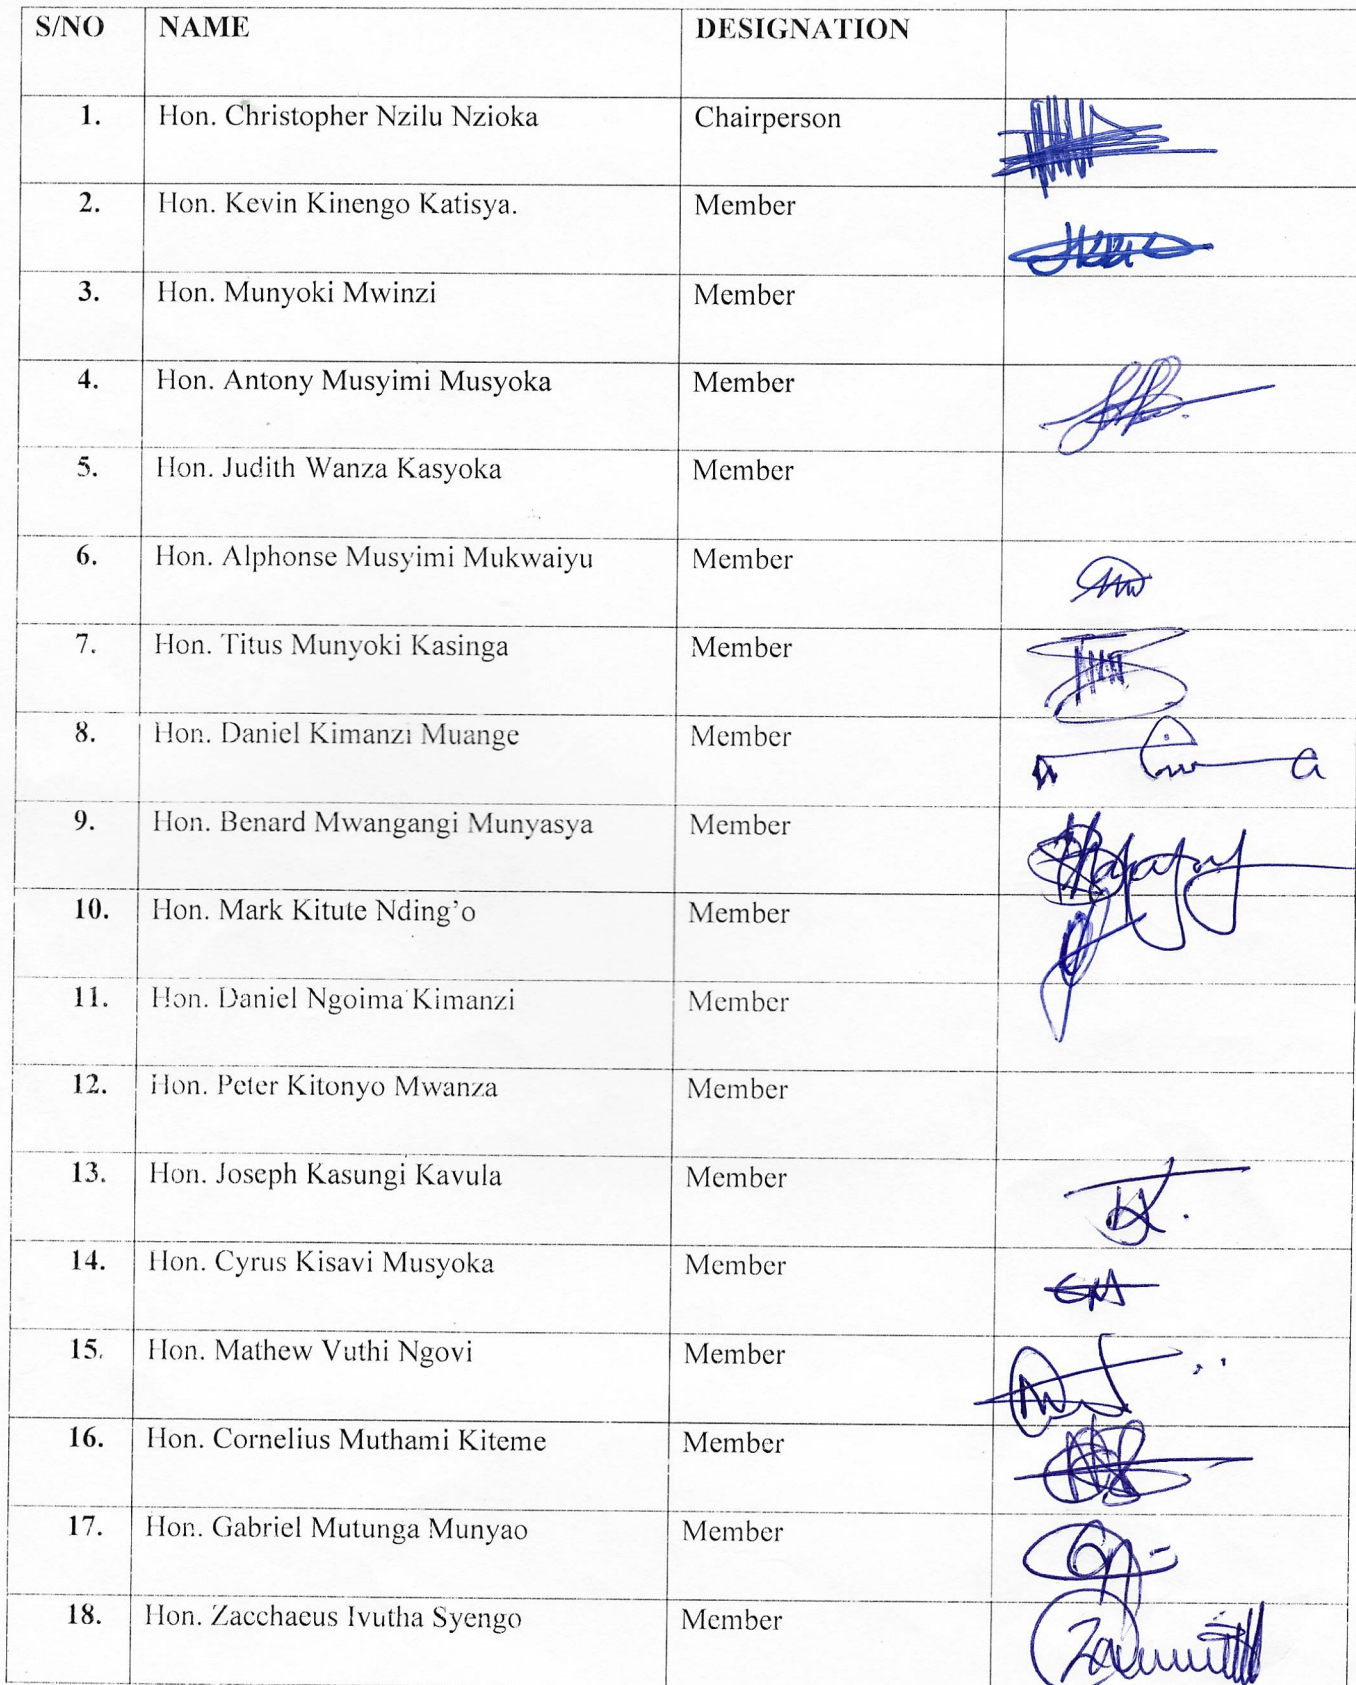 S/NO NAME DESIGNATION
1. Hon. Christopher Nzilu Nzioka Chairperson
2. Hon. Kevin Kinengo Katisya. Member
3. Hon. Munyoki Mwinzi Member
4. Hon. Antony Musyimi Musyoka Member
5. Hon. Judith Wanza Kasyoka Member
6. Hon. Alphonse Musyimi Mukwaiyu Member
7. Hon. Titus Munyoki Kasinga Member
8. Hon. Daniel Kimanzi Muange Member
9. Hon. Benard Mwangangi Munyasya Member
10. Hon. Mark Kitute Nding’o Member
11. Hon. Daniel Ngoima Kimanzi Member
12. Hon. Peter Kitonyo Mwanza Member
13. Hon. Joseph Kasungi Kavula Member
14. Hon. Cyrus Kisavi Musyoka Member
15. Hon. Mathew Vuthi Ngovi Member
16. Hon. Cornelius Muthami Kiteme Member
17. Hon. Gabriel Mutunga Munyao Member
18. Hon. Zacchaeus Ivutha Syengo Member